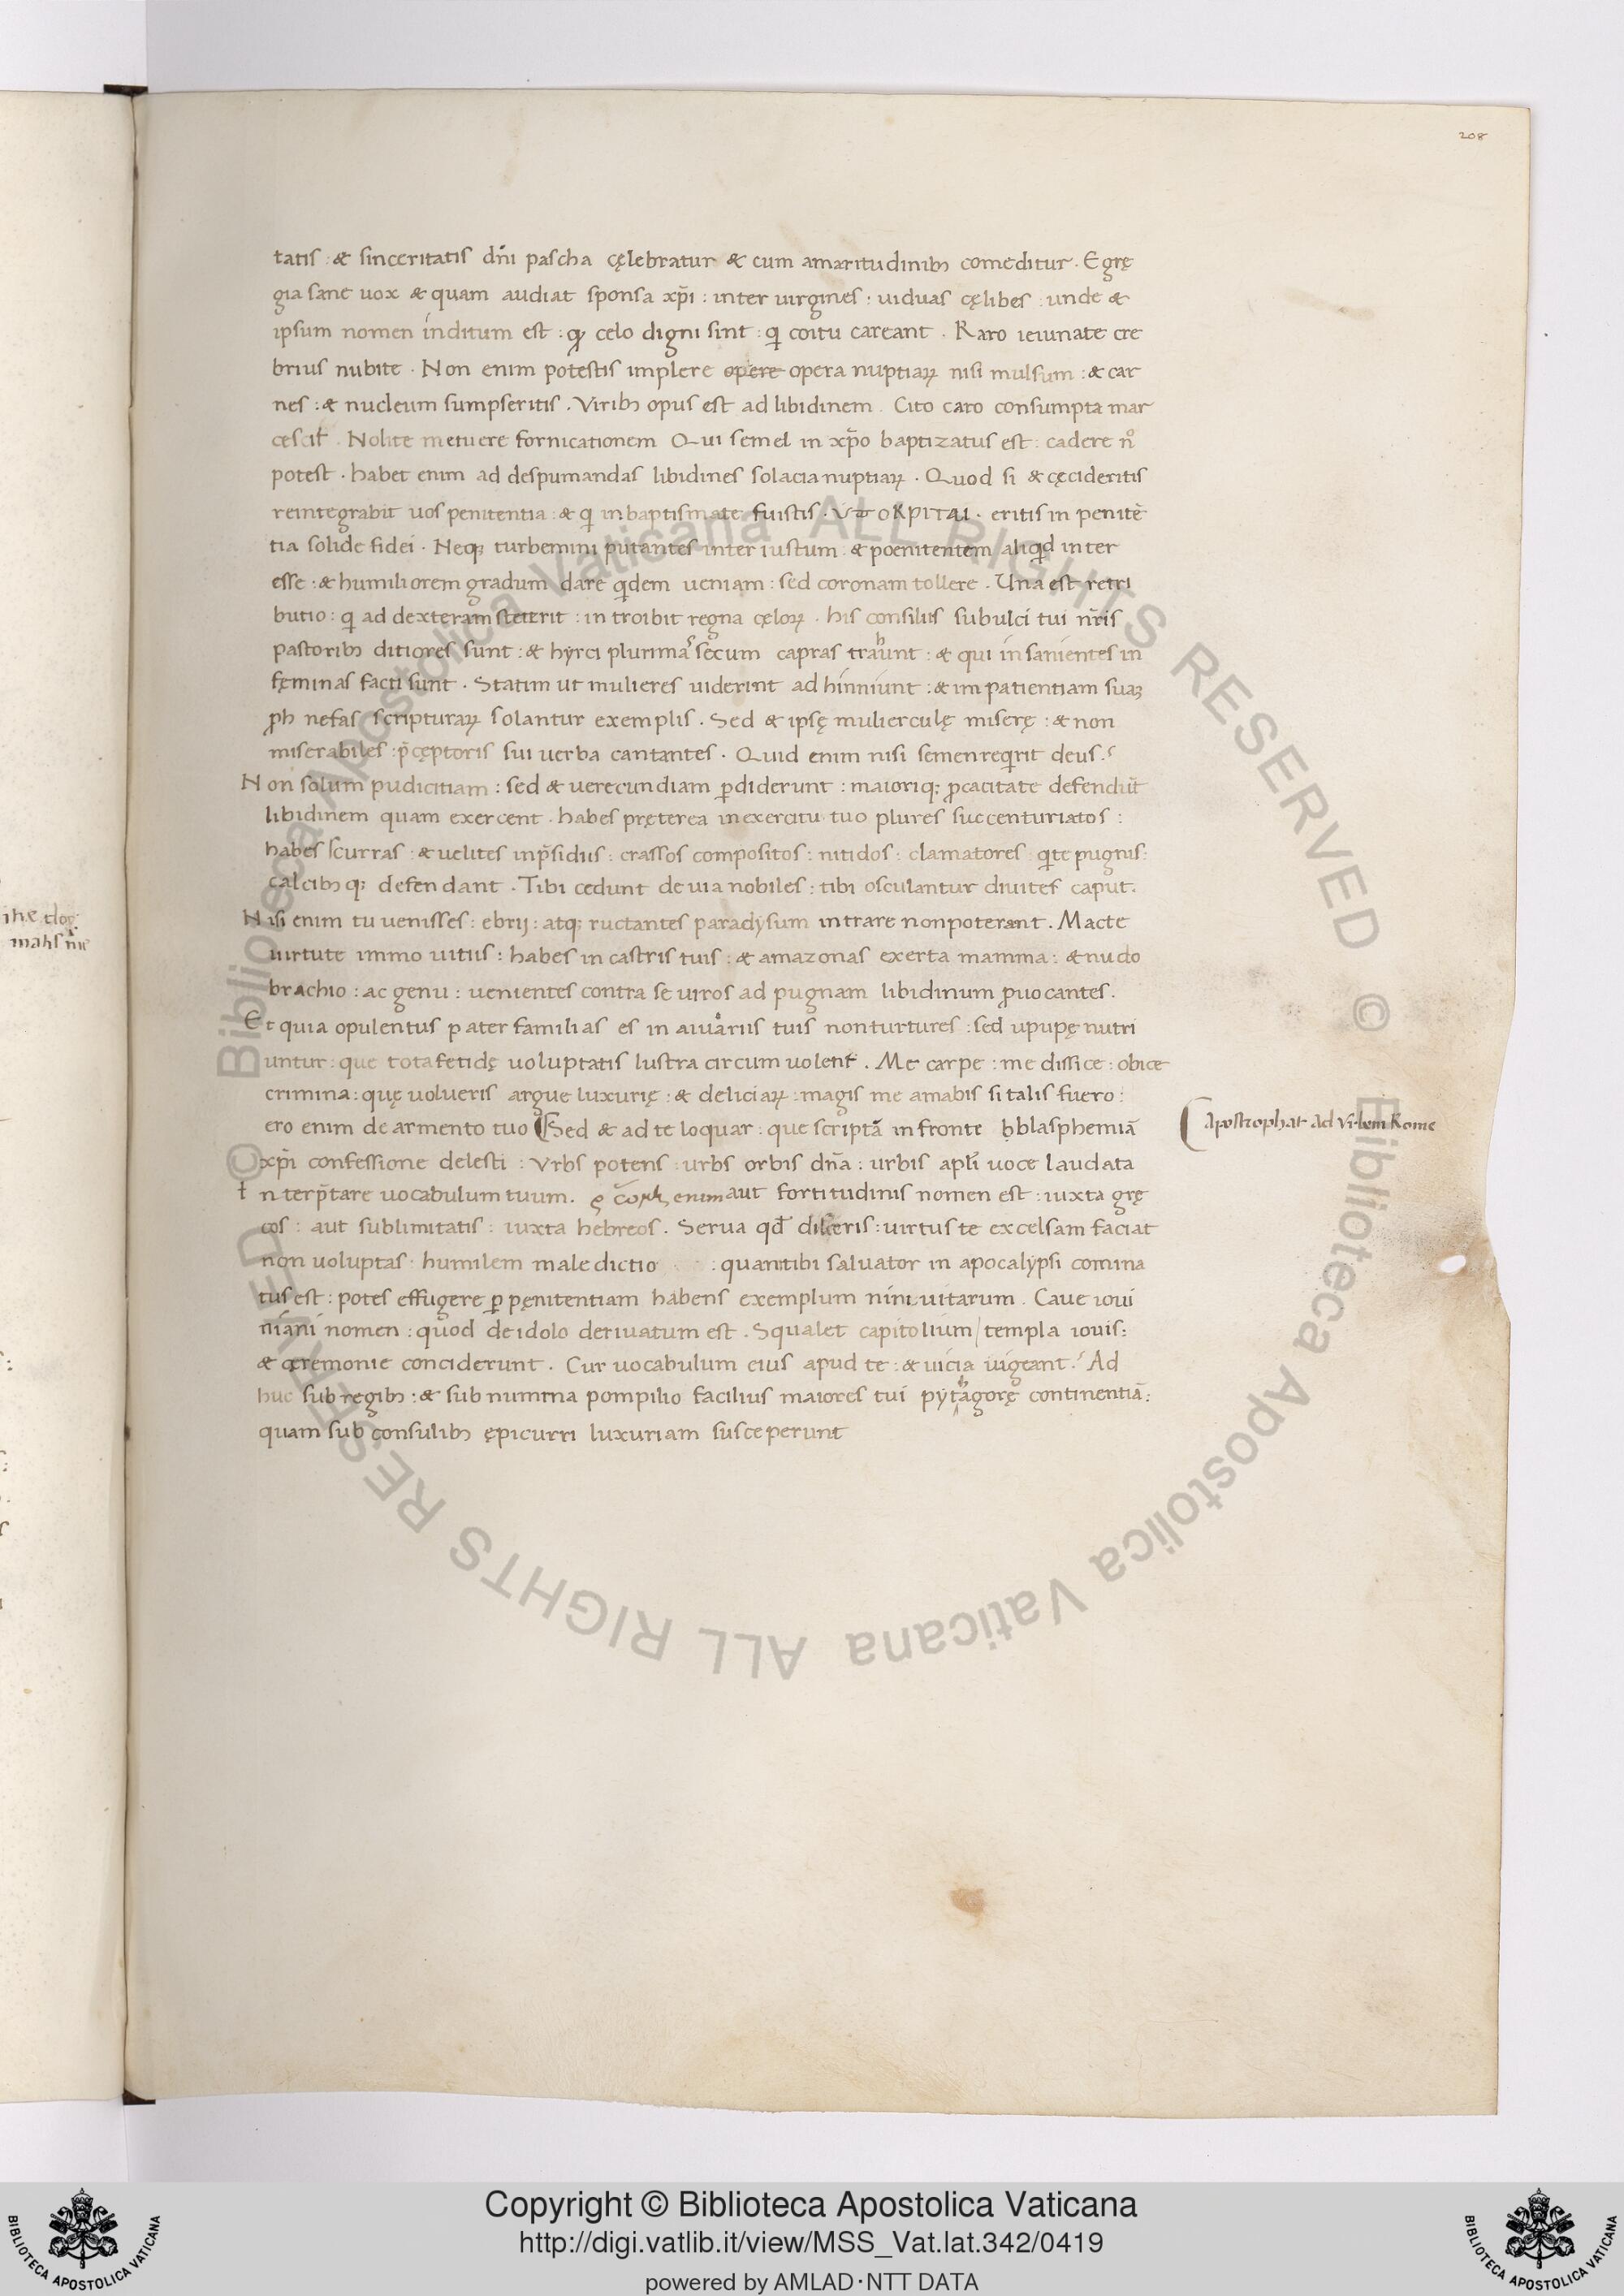 208
tatis : & sinceritatis dñi pascha cęlebratur & cum amaritudinibꝫ comeditur . Egrę
gia sane uox & quam audiat sponsa xp̄i : inter uirgines : uiduas cęlibes : unde &
ipsum nomen inditum est : ꝙ celo digni sint : qi coitu careant . Raro ieiunate cre
brius nubite . Non enim potestis implere opere opera nuptiaꝝ nisi mulsum : & car
nes : & nucleum sumpseritis . Viribꝫ opus est ad libidinem . Cito caro consumpta mar
cescit . Nolite metuere fornicationem Qui semel in xp̄o baptizatus est : cadere nō
potest . habet enim ad despumandas libidines solacia nuptiaꝝ . Quod si & cęcideritis
reintegrabit uos penitentia : & qi in baptismate fuistis . VTOKPITAI . eritis in penitē
tia solide fidei . Neqꝫ turbemini putantes inter iustum & poenitentem aliqid inter
esse : & humiliorem gradum dare qidem ueniam : sed coronam tollere . Una est retri
butio : qi ad dexteram steterit : introibit regna cęloꝝ . his consiliis subulci tui nr̄is
pastoribꝫ ditiores sunt : & hyrci plurimas secum capras trahunt : & qui insanientes in
fęminas facti sunt . Statim ut mulieres uiderint adhinniunt : & impatientiam suaꝫ
ꝓh nefas scripturaꝝ solantur exemplis . Sed & ipsę mulierculę miserę : & non
miserabiles : p̄cęptoris sui uerba cantantes . Quid enim nisi semen reqirit deus .
Non solum pudicitiam : sed & uerecundiam ꝑdiderunt : maioriqꝫ ꝓcacitate defendūt
libidinem quam exercent . habes pręterea in exercitu tuo plures succenturiatos :
habes scurras : & uelites in p̄sidiis : crassos compositos : nitidos : clamatores qi te pugnis :
calcibꝫ qꝫ defendant . Tibi cedunt de uia nobiles : tibi osculantur diuites caput .
Nisi enim tu uenisses : ebrij : atqꝫ ructantes paradysum intrare non poterant . Macte
uirtute immo uitiis : habes in castris tuis : & amazonas exerta mamma : & nudo
brachio : ac genu : uenientes contra se uiros ad pugnam libidinum ꝓuocantes .
Et quia opulentus pater familias es in auiariis tuis non turtures : sed upupę nutri
untur : que tota fetidę uoluptatis lustra circum uolent . Me carpe : me dissice : obice
crimina : quę uolueris argue luxurię : & deliciaꝝ : magis me amabis si talis fuero :
ero enim de armento tuo Sed & ad te loquar : que scriptā in fronte blasphemiā
xp̄i confessione delesti : Vrbs potens : urbs orbis dn̄a : urbis apl̄i uoce laudata
Apostrophat ad Vrbem Rome
Interp̄tare uocabulum tuum . enim aut fortitudinis nomen est : iuxta grę
cos : aut sublimitatis : iuxta hebreos . Serua qđ diceris : uirtus te excelsam faciat
non uoluptas : humilem maledictio : quam tibi saluator in apocalypsi comina
tus est : potes effugere ꝑ pęnitentiam habens exemplum niniuitarum . Caue ioui
niani nomen : quod de idolo deriuatum est . Squalet capitolium / templa iouis :
& ceremonie conciderunt . Cur uocabulum eius apud te : & uicia uigeant . Ad
huc sub regibꝫ : & sub numma pompilio facilius maiores tui pythagorę continentiā :
quam sub consulibꝫ ępicurri luxuriam susceperunt
© Biblioteca Apostolica Vaticana ALL RIGHTS RESERVED © Biblioteca Apostolica Vaticana ALL RIGHTS RESERVED
Copyright © Biblioteca Apostolica Vaticana
http://digi.vatlib.it/view/MSS_Vat.lat.342/0419
powered by AMLAD·NTT DATA
BIBLIOTECA APOSTOLICA VATICANA
BIBLIOTECA APOSTOLICA VATICANA